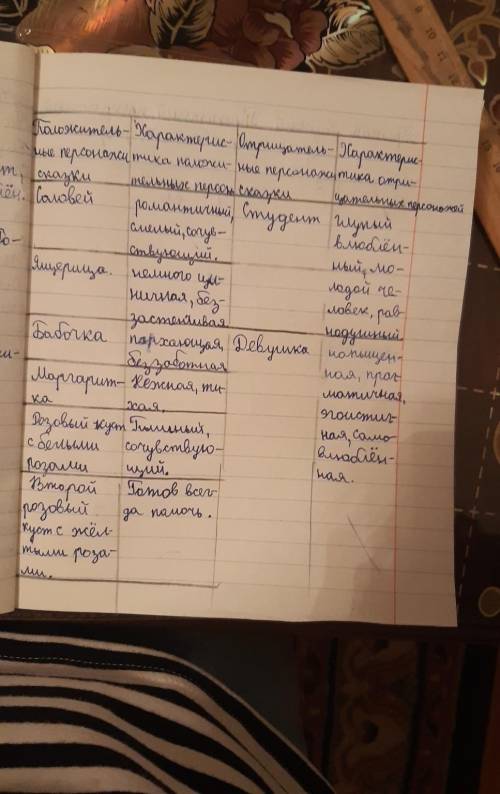 Положитель-
ные персонажи
сказки
Характерис-
тика положи-
тельных персон
Отрицатель-
ные персонажи
сказки
Характерис-
тика отри-
цательных персонажей
Соловей
романтичный,
смелый, сочув-
ствующий.
Студент
глупый
влюблён-
ный, мо-
лодой че-
ловек, рав-
нодушный
Ящерица.
немного ци-
ничная, без-
застенчивая
Бабочка
порхающая,
беззаботная
Девушка
напыщен-
ная, праг-
матичная,
эгоистич-
ная, само-
влюблён-
ная.
Маргарит-
ка
Нежная, ти-
хая.
Розовый куст
с белыми
розами
сочувствую-
щий.
Второй
розовый
куст с жёл-
тыми роза-
ми.
Готов всег-
да помочь.